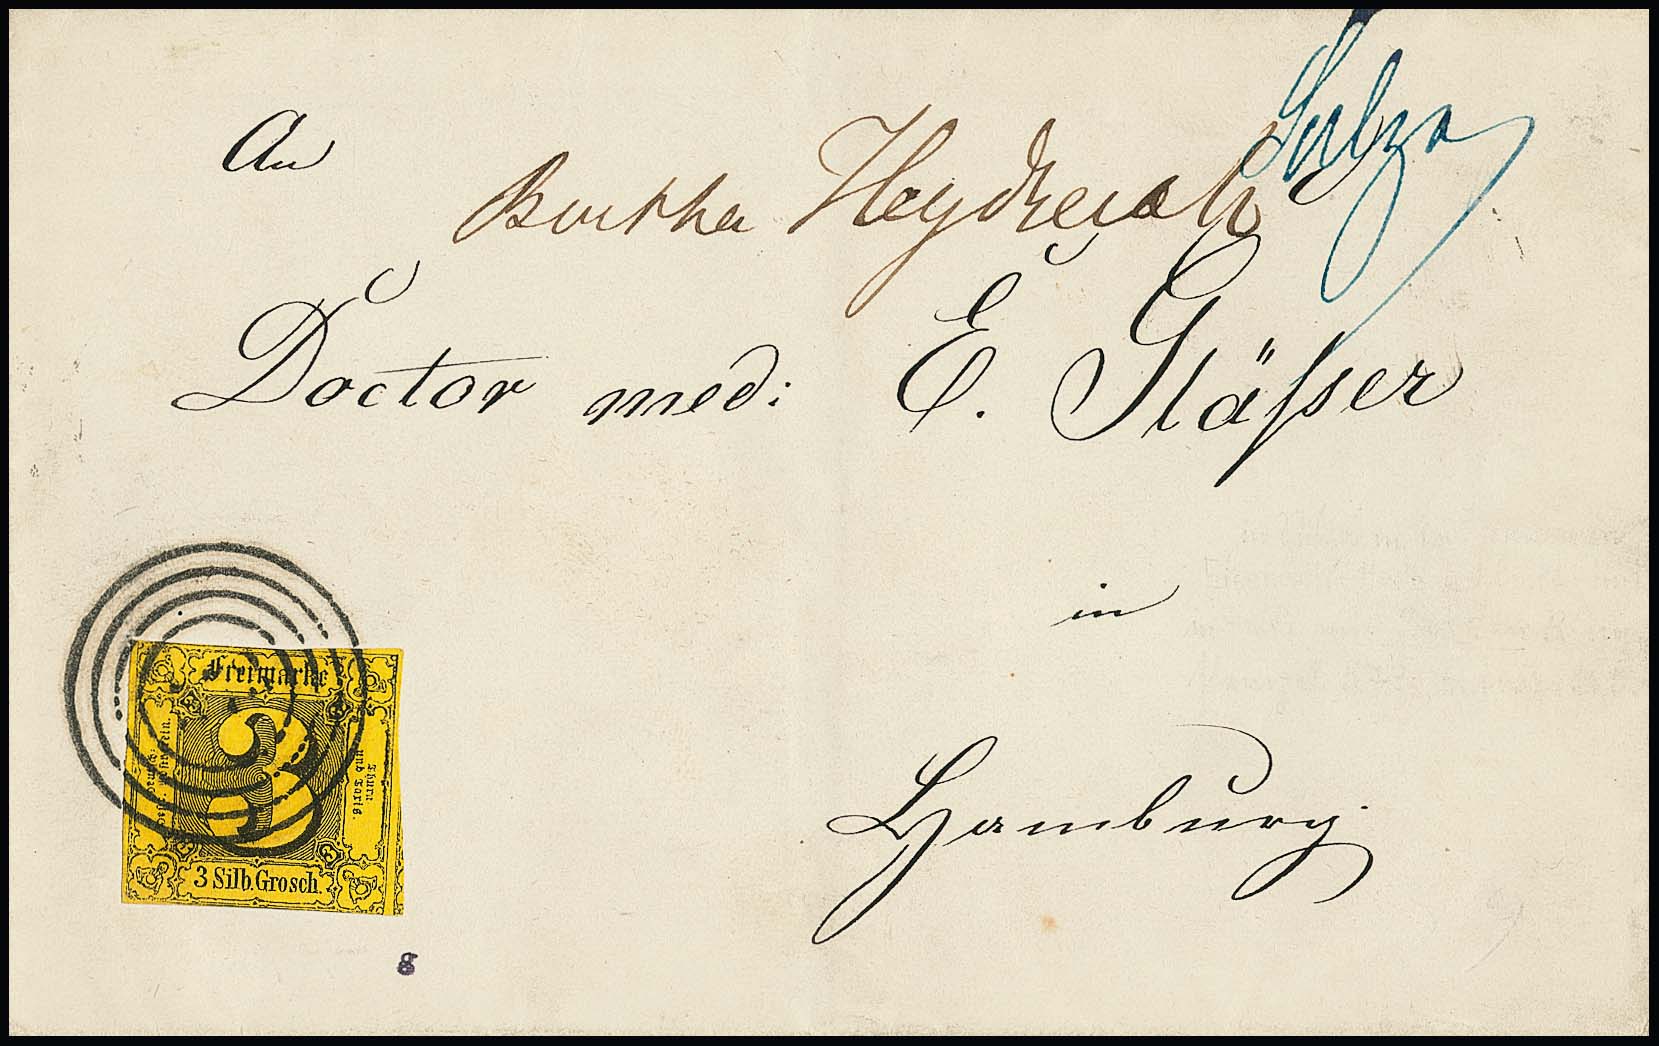 An
Sulza
Bertha Heydreich
Doctor med: E. Gläſser
in
Hamburg
Freimarke
Thurn
und Taxis.
3
3 Silb. Grosch.
g